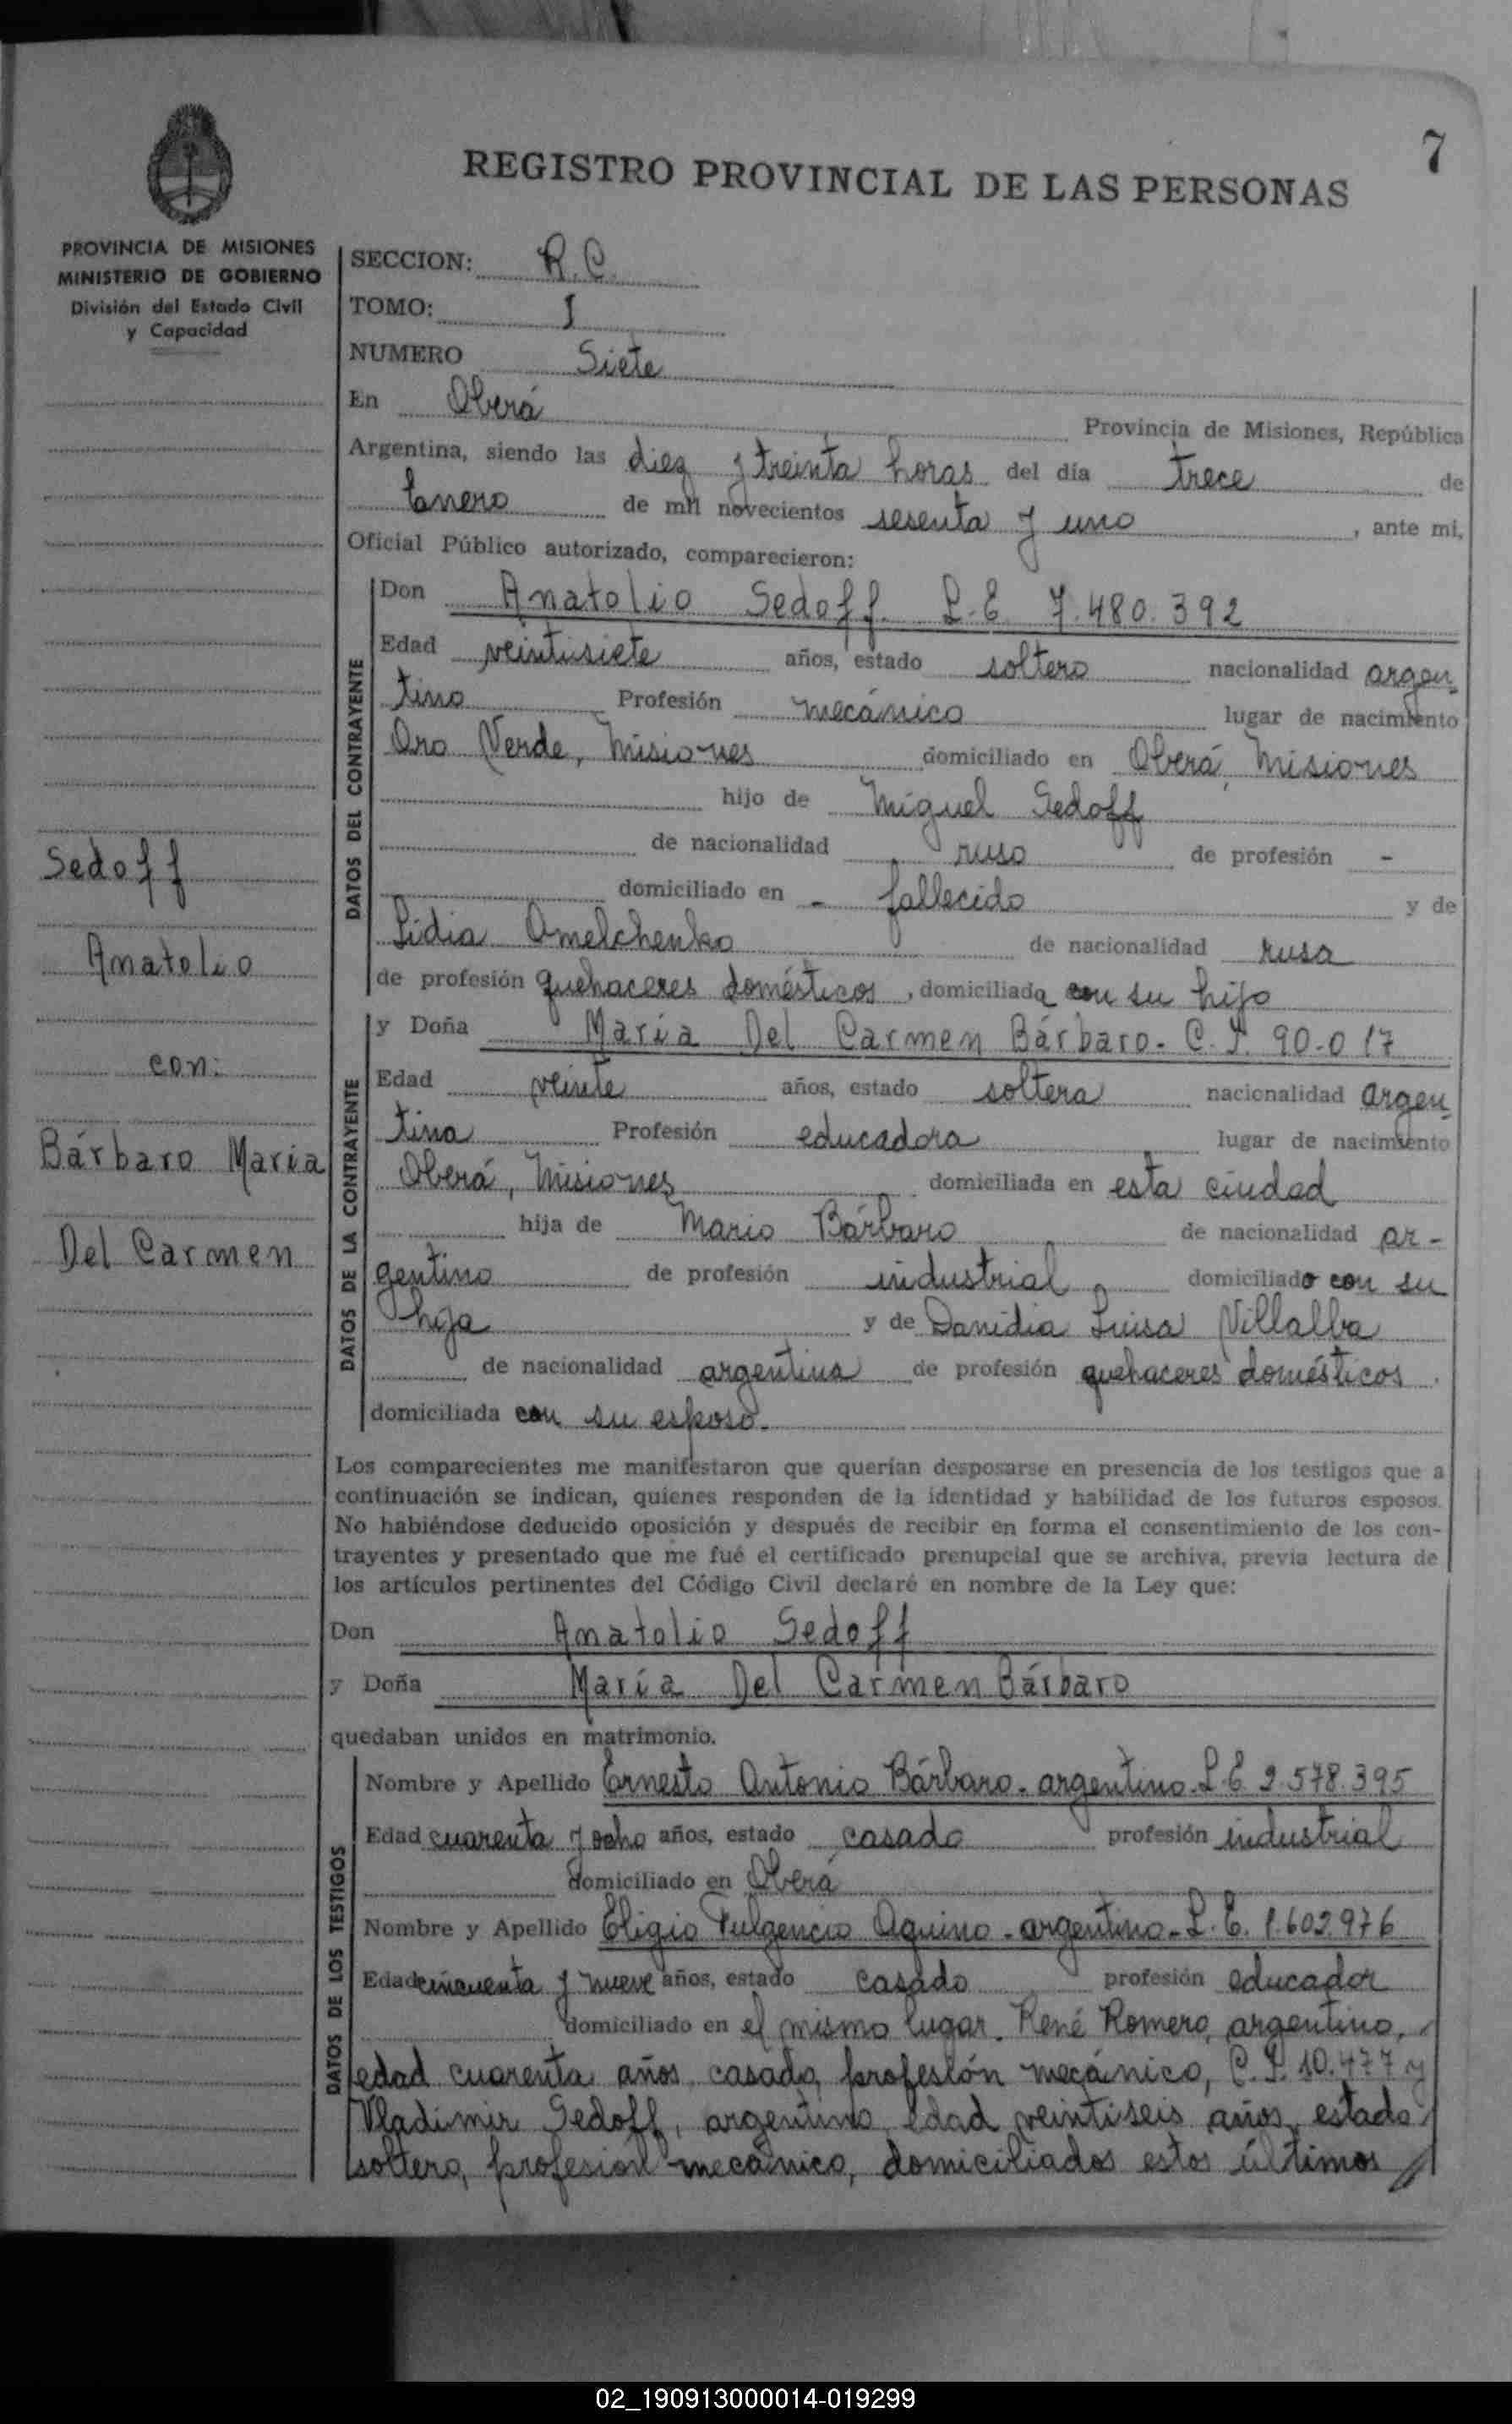 7
REGISTRO PROVINCIAL DE LAS PERSONAS
PROVINCIA DE MISIONES
MINISTERIO DE GOBIERNO
División del Estado Civil
y Capacidad
SECCION: R.C.
TOMO: I
NUMERO Siete
En Oberá Provincia de Misiones, República
Argentina, siendo las diez y treinta horas del día trece de
Enero de mil novecientos sesenta y uno, ante mi,
Oficial Público autorizado, comparecieron:
DATOS DEL CONTRAYENTE
Don Anatolio Sedoff. L.E 7.480.392
Edad veintisiete años, estado soltero nacionalidad argen-
tino Profesión mecánico lugar de nacimiento
Oro Verde, Misiones domiciliado en Oberá, Misiones
hijo de Miguel Sedoff
de nacionalidad ruso de profesión -
domiciliado en - fallecido y de
Lidia Omelchenko de nacionalidad rusa
de profesión quehaceres domésticos, domiciliada con su hijo
DATOS DE LA CONTRAYENTE
y Doña María Del Carmen Bárbaro. C.I. 90.017
Edad veinte años, estado soltera nacionalidad argen-
tina Profesión educadora lugar de nacimiento
Oberá, Misiones domiciliada en esta ciudad
hija de Mario Bárbaro de nacionalidad ar-
gentino de profesión industrial domiciliado con su
hija y de Danidia Luisa Villalba
de nacionalidad argentina de profesión quehaceres domésticos.
domiciliada con su esposo.
Sedoff
Anatolio
con:
Bárbaro María
Del Carmen
Los comparecientes me manifestaron que querían desposarse en presencia de los testigos que a
continuación se indican, quienes responden de la identidad y habilidad de los futuros esposos.
No habiéndose deducido oposición y después de recibir en forma el consentimiento de los con-
trayentes y presentado que me fué el certificado prenupcial que se archiva, previa lectura de
los artículos pertinentes del Código Civil declaré en nombre de la Ley que:
Don Anatolio Sedoff
y Doña María Del Carmen Bárbaro
quedaban unidos en matrimonio.
DATOS DE LOS TESTIGOS
Nombre y Apellido Ernesto Antonio Bárbaro. argentino. L.E. 2.578.395
Edad cuarenta y ocho años, estado casado profesión industrial
domiciliado en Oberá
Nombre y Apellido Eligio Fulgencio Aquino - argentino - L.E. 1.602.976
Edad cincuenta y nueve años, estado casado profesión educador
domiciliado en el mismo lugar. René Romero, argentino,
edad cuarenta años, casado, profesión mecánico, C.I. 10.477 y
Vladimir Sedoff, argentino edad veintiseis años, estado
soltero, profesión mecánico, domiciliados estos últimos
02_190913000014-019299